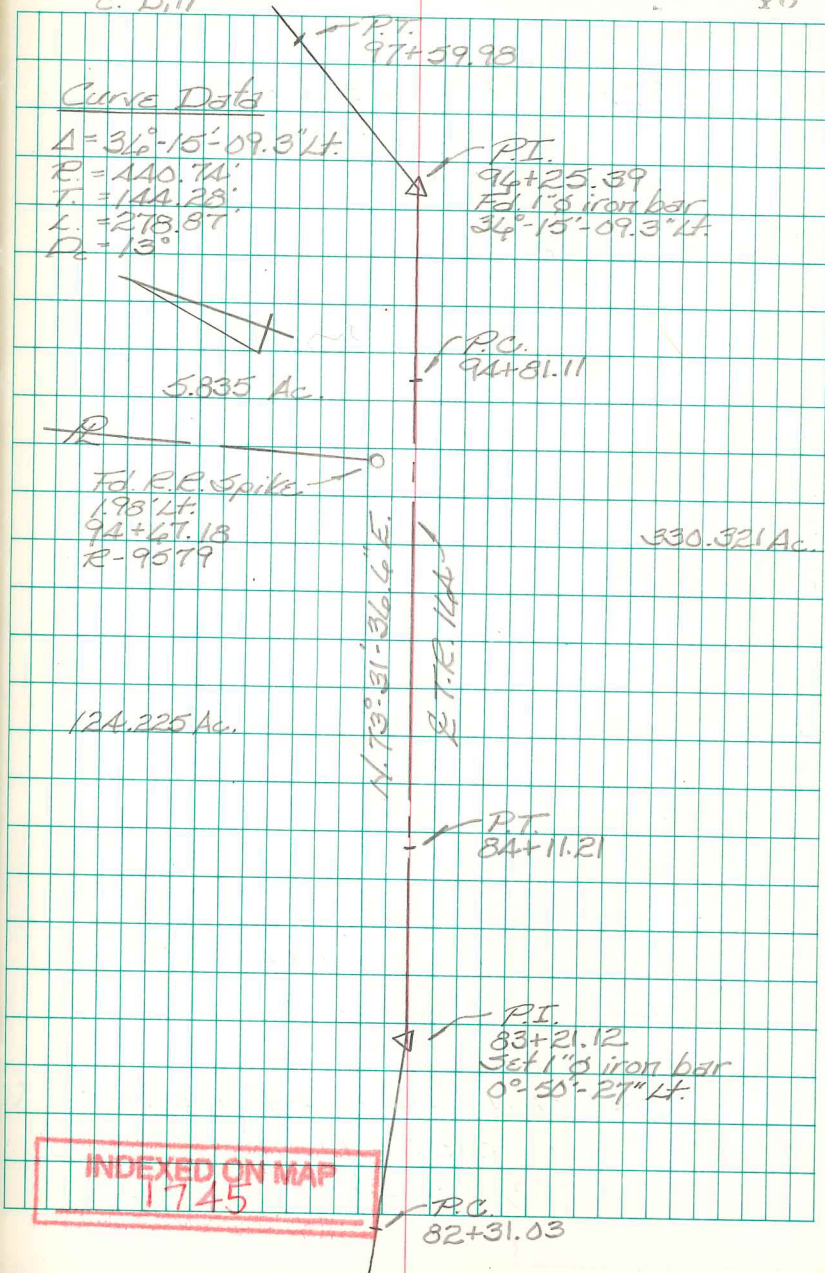 C. Dill
P.T.
97+59.98
Curve Data
Δ = 36°-15'-09.3" Lt.
R. = 440.74'
T. = 144.28'
L. = 278.87'
Dc = 13°
P.I.
96+25.39
Fd. 1"ø iron bar
36°-15'-09.3" Lt.
P.C.
94+81.11
5.835 Ac.
PL
Fd. R.R. Spike
1.98' Lt.
94+67.18
R-9579
330.321 Ac.
N. 73°-31'-36.6" E.
℄ T.R. 164
124.225 Ac.
P.T.
84+11.21
P.I.
83+21.12
Set 1"ø iron bar
0°-50'-27" Lt.
INDEXED ON MAP
1745
P.C.
82+31.03